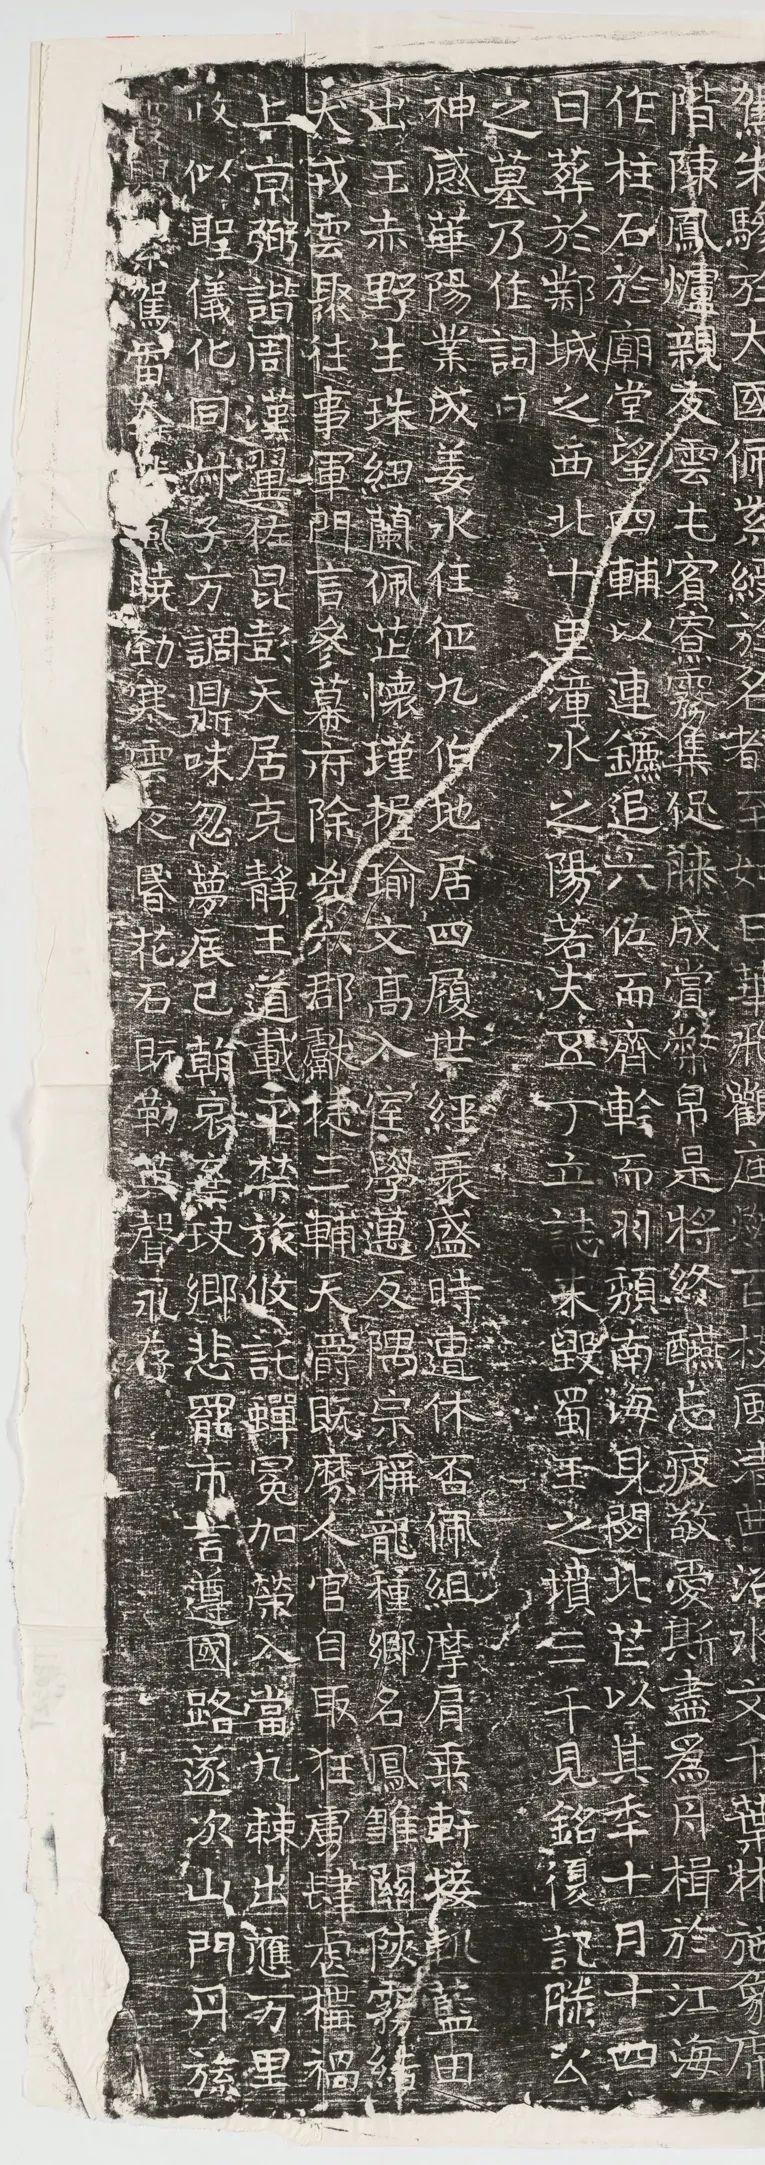 駕朱驂於大國佩紫綬於名者至如日華飛觀庭散百枝風清曲沼水文千葉牀施象席
階陳鳳爐親友雲屯賓寮霧集從膝成賞幣帛是將終醼忘疲敬愛斯盡爲舟楫於江海
作柱石於廟堂望四輔以連鑣追六佐而齊軨而羽頹南海身閟北芒以其年十月十四
日葬於鄴城之西北十里漳水之陽若夫五丁立誌未毀蜀王之墳三千見銘復記滕公
之墓乃作詞曰
神感華陽業成姜水往征九伯地居四履世經衰盛時遭休否佩組摩肩乘軒接軌藍田
出玉赤野生珠紉蘭佩芷懷瑾握瑜文高入室學邁反隅宗稱龍種鄉名鳳雛關陝霧結
犬戎雲聚往事軍門言參幕府除凶六郡獻捷三輔天爵既縻人官自取狂虜肆虐構禍
上京弼諧周漢翼佐昆彭天居克靜王道載平禁旅攸託蟬冕加榮入當九棘出應万里
政以聖儀化同村子方調鼎味忽夢辰巳朝哀葉玦鄉悲罷市言遵國路逐次山門丹旐
駕雷奔 風曉勁寒雲夜昏花石既勒英聲永存